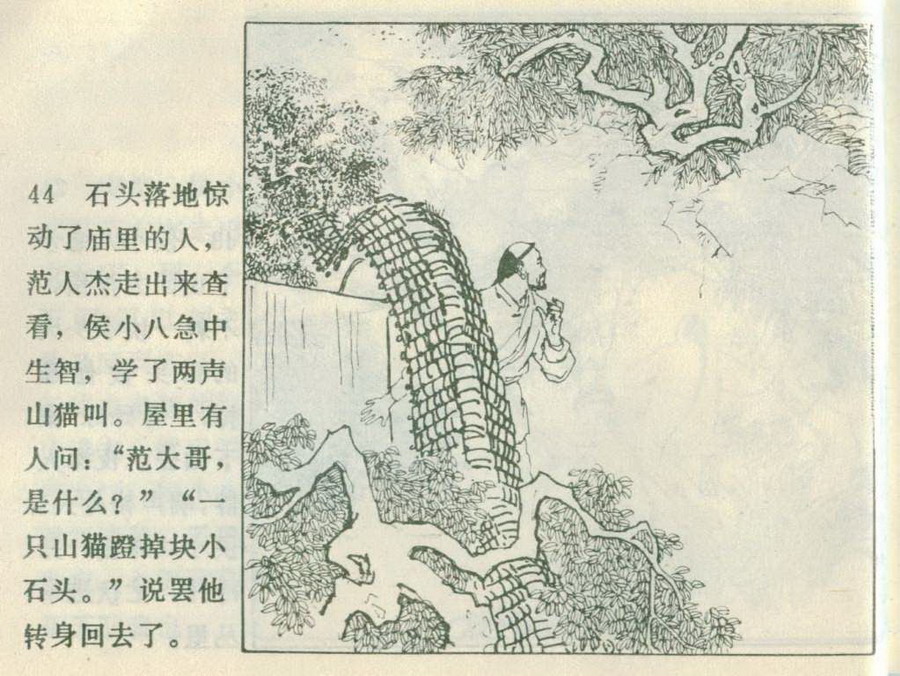 44　石头落地惊
动了庙里的人，
范人杰走出来查
看，侯小八急中
生智，学了两声
山猫叫。屋里有
人问：“范大哥，
是什么？”“一
只山猫蹬掉块小
石头。”说罢他
转身回去了。